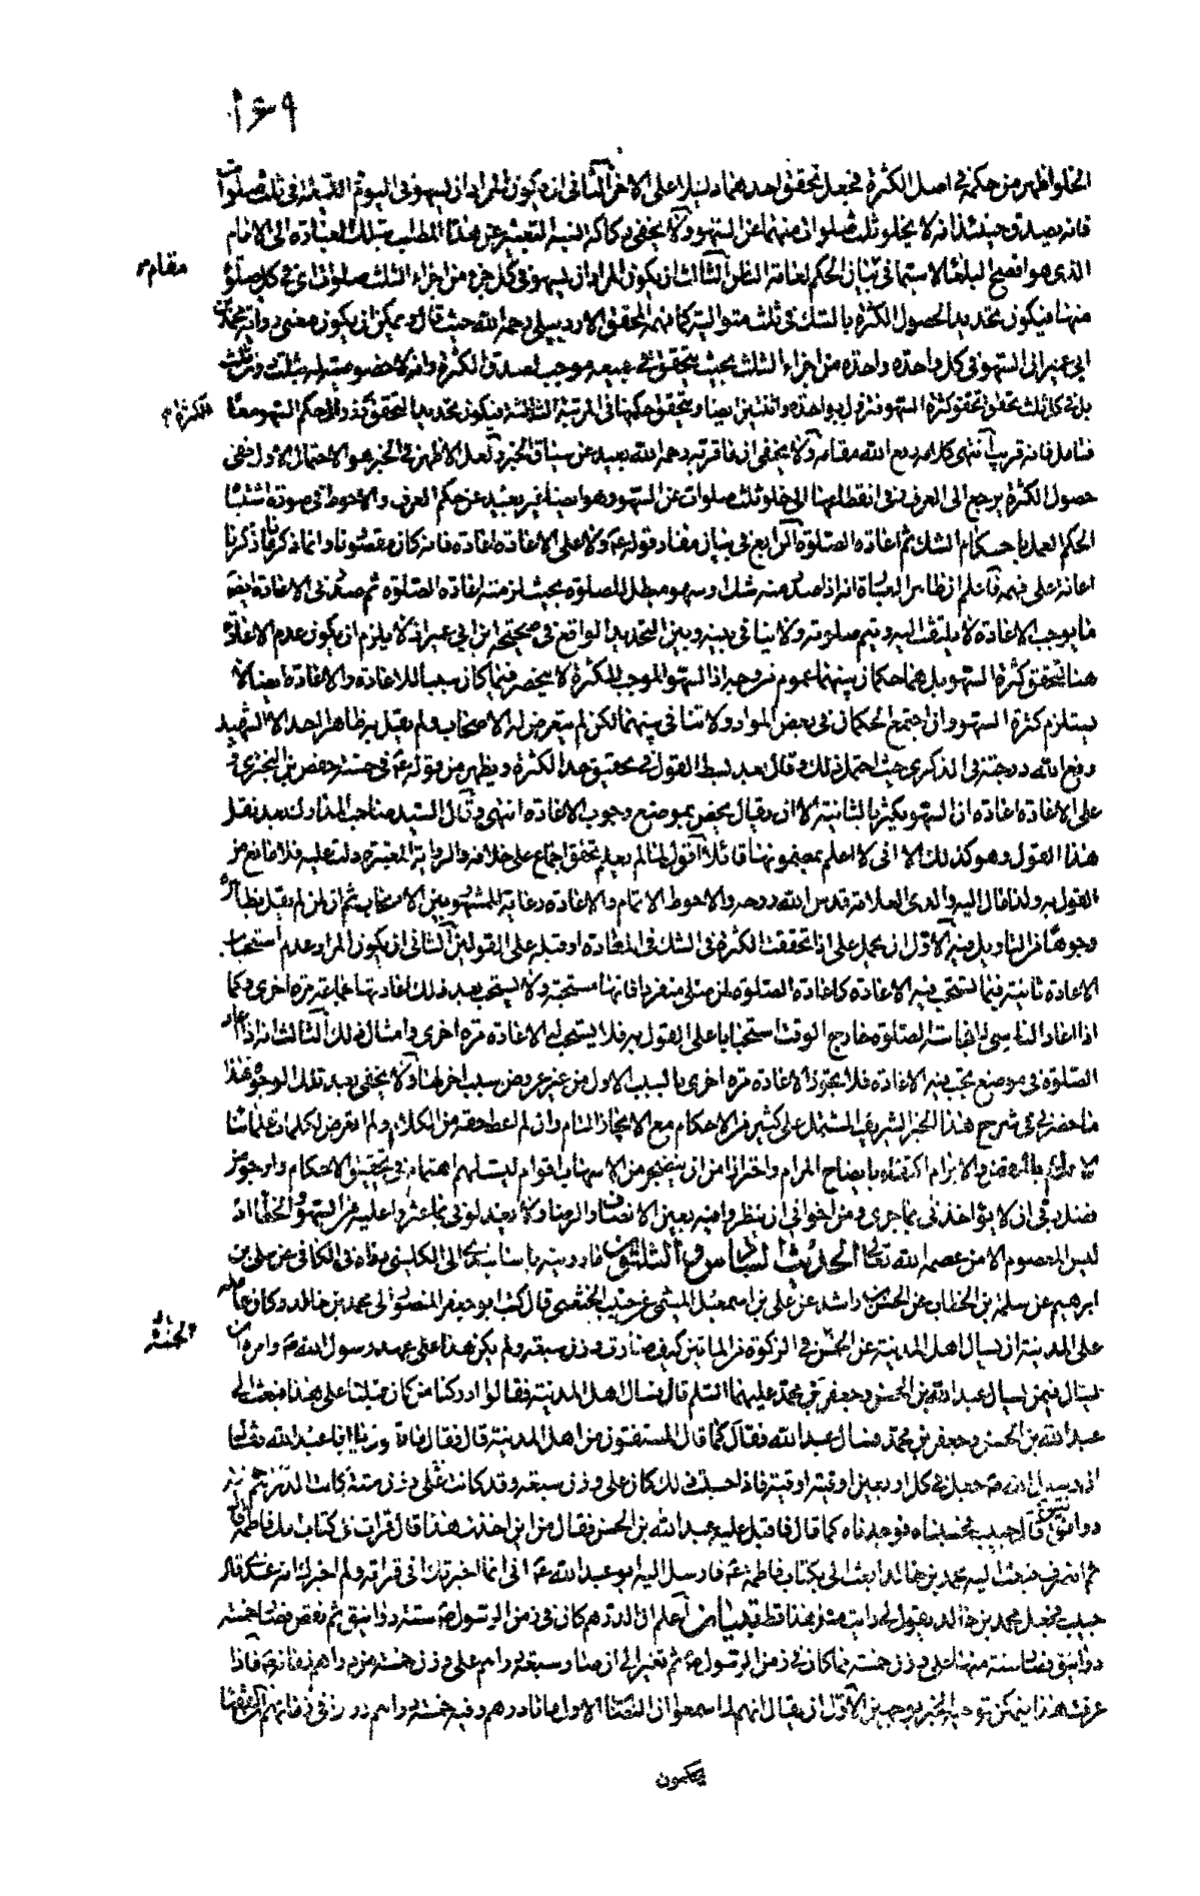 ١٦٩
الخلو اظهر من حكمه في اصل الكثرة فجعل تحقق احدهما دليلا على الاخر الثاني ان يكون المراد ان يسهو في اليوم الليلة في ثلث صلوات
فانه يصدق حينئذ انه لا يخلو ثلث صلوات منهما عن السهو ولا يخفى ركاكة التعبير عن هذا المطلب بتلك العبارة الى الامام
الذي هو افصح البلغاء لا سيما في بيان الحكم لعامة الناظر الثالث ان يكون المراد ان يسهو في كل جزء من اجزاء الثلث صلوات اي في كل صلوة
مقام
منها فيكون تحديد الحصول الكثرة بالشك في ثلث متوالية كما فهمه المحقق الاردبيلي رحمه الله حيث قال ويمكن ان يكون معنى رواية محمد بن
ابي عمير ان السهو في كل واحدة واحدة من اجزاء الثلث بحيث يتحقق في جميعه موجب لصدق الكثرة وانه لا خصوصية له بثلث دون ثلث
بل في كل ثلث تحقق تحقق كثرة السهو فتزول بواحدة واثنتين ايضا ويتحقق حكمها في المرتبة الثالثة فيكون تحديدا لتحقق وزوال حكم السهو معا
الكثرة
فتامل فانه قريب انتهى كلامه رفع الله مقامه ولا يخفى ان ما قربه رحمه الله بعيد عن سياق الخبر ولعل الاظهر في الخبر هو الاحتمال الاول ففي
حصول الكثرة يرجع الى العرف وفي انقطاعها الى خلو ثلث صلوات عن السهو وهو ايضا غير بعيد عن حكم العرف والاحوط في صورة اشتباه
الحكم العمل باحكام الشك ثم اعادة الصلوة الرابع في بيان مفاد قوله ع ولا على الاعادة اعادة فانه كان مقصودنا وانما ذكرنا ما ذكرنا
اعانة على فهمه فاعلم ان ظاهر العبارة انه اذا صدر منه شك او سهو مبطل للصلوة بحيث لزمته اعادة الصلوة ثم صدر في الاعادة ايضا
ما يوجب الاعادة لا يلتفت اليه ويتم صلوته ولا ينافي بينه وبين التحديد الواقع في صحيحة ابن ابي عمير اذ لا يلزم ان يكون عدم الاعادة
هنا لتحقق كثرة السهو بل هما حكمان بينهما عموم من وجه اذ السهو الموجب للكثرة لا ينحصر فيما كان سببا للاعادة والاعادة ايضا لا
يستلزم كثرة السهو وان اجتمع الحكمان في بعض المواد ولا تنافي بينهما لكن لم يتعرض له الاصحاب ولم يقل بظاهره احد الا الشهيد
رفع الله درجته في الذكرى حيث احتمل ذلك وقال بعد بسط القول في تحقيق حد الكثرة ويظهر من قوله ع في حسنة حفص بن البختري
على الاعادة اعادة ان السهو يكثر بالثانية الا ان يقال يخص بموضع وجوب الاعادة انتهى وقال السيد صاحب المدارك بعد نقل
هذا القول وهو كذلك الا اني لا اعلم بمضمونها قائلا اقول لما لم يعلم تحقق اجماع على خلافه والرواية المعتبرة دلت عليه فلا مانع من
القول به ولذا مال اليه والدي العلامة قدس الله روحه والاحوط الاتمام والاعادة رعاية للمشهور بين الاصحاب ثم ان من لم يقل بظاهره
وجوها من التاويل فيه الاول ان يحمل على اذا تحققت الكثرة في الشك في او قبله على القولين الثاني ان يكون المراد عدم استحباب
الاعادة ثانية فيما تستحب فيه الاعادة كاعادة الصلوة لمن صلى منفردا فانها مستحبة ولا يستحب بعد ذلك اعادتها جماعة مرة اخرى وكما
اذا اعاد الناسي للنجاسة الصلوة خارج الوقت استحبابا على القول به فلا يستحب له الاعادة مرة اخرى وامثال ذلك الثالث انه اذا اعاد
الصلوة في موضع يجب فيه الاعادة فلا يجوز الاعادة مرة اخرى بالسبب الاول من غير عروض سبب اخر لها ولا يخفى بعد تلك الوجوه هذا
ما حضرني في شرح هذا الخبر الشريف المشتمل على كثير من الاحكام مع الايجاز التام وان لم اعط حقه من الكلام ولم اتعرض لكلمات علمائنا
الاعلام بالنقض والابرام اكتفاء بايضاح المرام واحترازا من ان ينضجر من الاسهاب اقوام ليس لهم اهتمام في تحقيق الاحكام وارجو من
فضل ربي ان لا يؤاخذني بما جرى ومن اخواني ان ينظروا فيه بعين الانصاف والرضا ولا يعيروني بما عثروا عليه من السهو والخطأ اذ
ليس المعصوم الا من عصمه الله تعالى الحديث السادس والثلثون ما رويته باسانيدي الى الكليني رواه في الكافي عن علي بن
ابرهيم عن سلمة بن الخطاب عن الحسن بن راشد عن علي بن اسمعيل الميثمي عن حبيب الخثعمي قال كتب ابو جعفر المنصور الى محمد بن خالد وكان عامله
على المدينة ان يسال اهل المدينة عن الخمسة في الزكوة من المائتين كيف صارت وزن سبعة ولم يكن هذا على عهد رسول الله ص وامره ان
الخمسة
يسال فيمن يسال عبد الله بن الحسن وجعفر بن محمد عليهما السلم قال فسال اهل المدينة فقالوا ادركنا من كان قبلنا على هذا فبعث الى
عبد الله بن الحسن وجعفر بن محمد فسال عبد الله فقال كما قال المستفتون من اهل المدينة قال فقال ما تقول يا ابا عبد الله فقال
ان رسول الله ص جعل في كل اربعين اوقية اوقية فاذا حسبت ذلك كان على وزن سبعة وقد كانت على وزن ستة كانت الدراهم خمسة
دوانيق قال حبيب فحسبناه فوجدناه كما قال فاقبل عليه عبد الله بن الحسن فقال من اين اخذت هذا قال قرات في كتاب امك فاطمة قال
ثم انصرف فبعث اليه محمد بن خالد ابعث الي بكتاب فاطمة ع فارسل اليه ابو عبد الله ع اني انما اخبرتك اني قراته ولم اخبرك انه عندي قال
حبيب فجعل محمد بن خالد يقول لي ما رايت مثل هذا قط بيان اعلم ان الدرهم كان في زمن الرسول ص ستة دوانيق ثم نقص فصار خمسة
دوانيق فصار ستة منها على وزن خمسة مما كان في زمن الرسول ص ثم تغير الى ان صار سبعة دراهم على وزن خمسة من دراهم زمانه ص فاذا
عرفت هذا فيمكن توجيه الخبر بوجهين الاول ان يقال انهم لما سمعوا ان النصاب الاول مائتا درهم وفيه خمسة دراهم
يحكمون